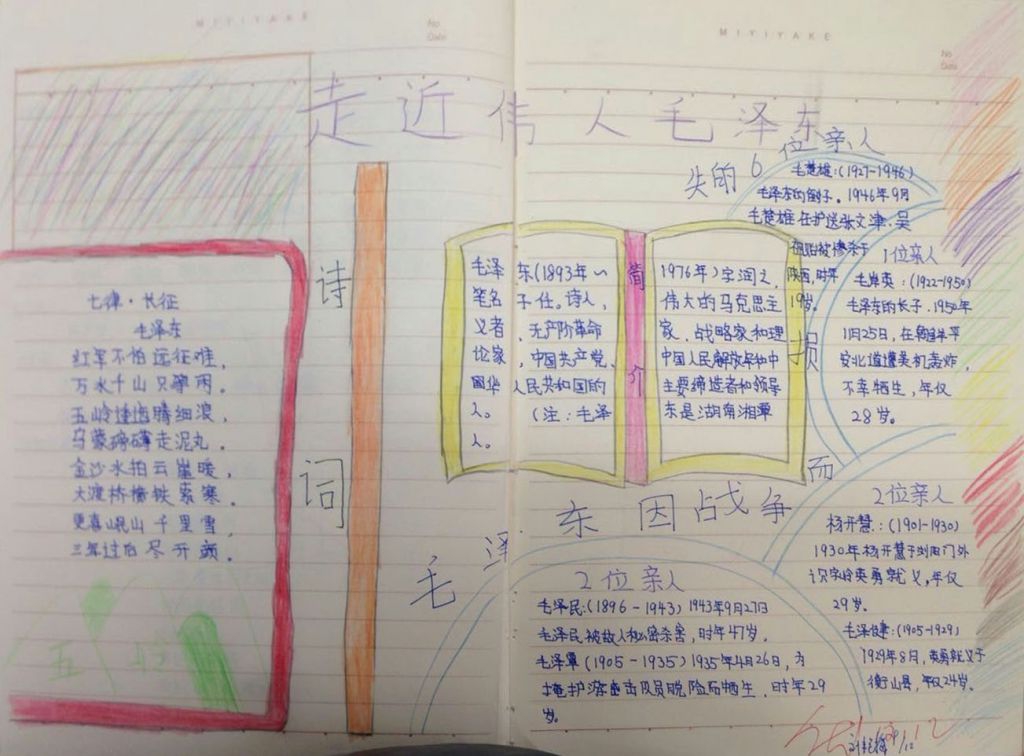 MIYIYAKE
No
Date
MIYIYAKE
No
Date
走近伟人毛泽东
诗词
七律·长征
毛泽东
红军不怕远征难，
万水千山只等闲。
五岭逶迤腾细浪，
乌蒙磅礴走泥丸。
金沙水拍云崖暖，
大渡桥横铁索寒。
更喜岷山千里雪，
三军过后尽开颜。
五
简介
毛泽东(1893年~
笔名子任。诗人，
义者，无产阶革命
论家，中国共产党、
国华人民共和国的
人。（注：毛泽
人。
1976年)字润之，
伟大的马克思主
家，战略家和理
中国人民解放军和中
主要缔造者和领导
东是湖南湘潭
毛泽东因战争而损失的6位亲人
毛楚雄:(1927-1946)
毛泽东的侄子。1946年9月
毛楚雄在护送张文津、吴
祖贻被惨杀于
陕西，时年
19岁。
1位亲人
毛岸英：(1922-1950)
毛泽东的长子。1950年
11月25日，在朝鲜平
安北道遭美机轰炸，
不幸牺生，年仅
28岁。
2位亲人
杨开慧：(1901-1930)
1930年杨开慧于浏阳门外
识字岭英勇就义，年仅
29岁。
毛泽建:(1905-1929)
1929年8月，英勇就义于
衡山县，年仅24岁。
2位亲人
毛泽民:(1896-1943) 1943年9月27日
毛泽民被敌人秘密杀害，时年47岁。
毛泽覃(1905-1935) 1935年4月26日，为
掩护游击队员脱险后牺生，时年29
岁。